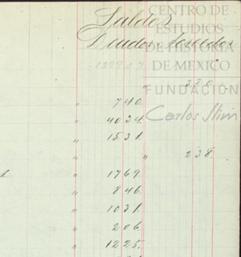 Saldos
Deudor Acreedor
CENTRO DE
ESTUDIOS
DE HISTORIA
DE MEXICO
FUNDACIÓN
Carlos Slim
" 740.
" 4024.
" 1531.
" 238.
" 1769.
" 846.
" 1031.
" 206.
" 1225.